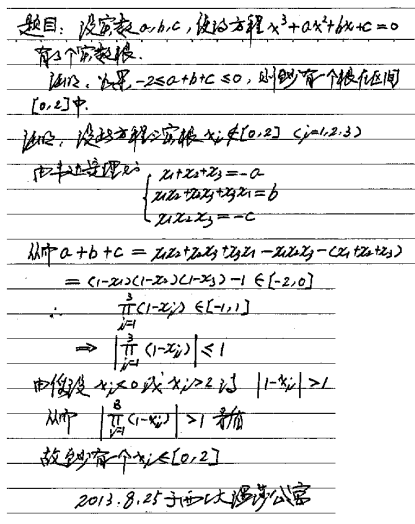 题目：设实数a,b,c，使得方程x³+ax²+bx+c=0
有3个实数根.
证明：如果-2≤a+b+c≤0，则至少有一个根在区间
[0,2]中.
证明：设方程实根 xⱼ∉[0,2] (j=1,2,3)
由韦达定理
x₁+x₂+x₃=-a
x₁x₂+x₂x₃+x₃x₁=b
x₁x₂x₃=-c
从而 a+b+c = x₁x₂+x₂x₃+x₃x₁-x₁x₂x₃-(x₁+x₂+x₃)
= (1-x₁)(1-x₂)(1-x₃)-1 ∈[-2,0]
∴ ∏ⱼ₌₁³(1-xⱼ) ∈[-1,1]
⇒ |∏ⱼ₌₁³(1-xⱼ)| ≤ 1
由假设 xⱼ<0 或 xⱼ>2 得 |1-xⱼ|>1
从而 |∏ⱼ₌₁³(1-xⱼ)| >1 矛盾
故至少有一个xⱼ∈[0,2]
2013.8.25于西大